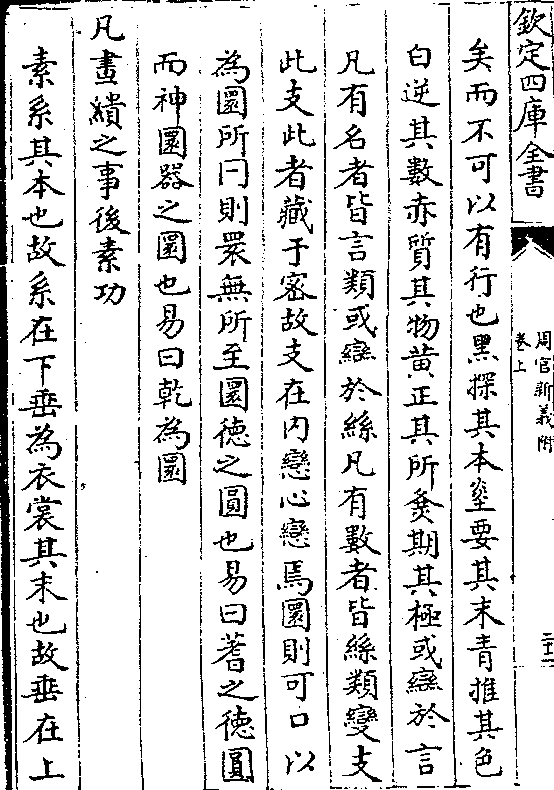 欽定四庫全書
周官新義附
卷上
矣而不可以有行也黑探其本堊要其末青推其色
白逆其數赤質其物黃正其所㷠期其極或䜌於言
凡有名者皆言類或䜌於絲凡有數者皆絲類變支
此支此者藏于宻故支在内戀心䜌焉圜則可囗以
為圜所冂則睘無所至圜徳之圓也易曰蓍之徳圓
而神圜器之圜也易曰乾為圜
凡畫繢之事後素功
素糸其本也故糸在下垂為衣裳其末也故垂在上